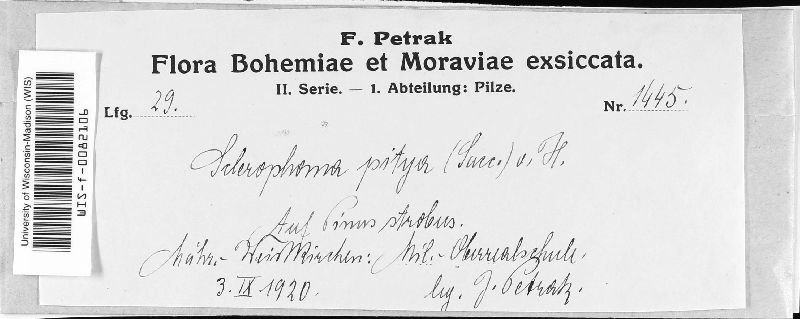 F. Petrak
Flora Bohemiae et Moraviae exsiccata.
II. Serie. — 1. Abteilung: Pilze.
Lfg. 29.
Nr. 1445.
Sclerophoma pitya (Sacc.) v. H.
Auf Pinus strobus.
Mähr.-Weisskirchen: Mil.-Oberrealschule.
3. IX 1920.
leg. J. Petrak.
University of Wisconsin-Madison (WIS)
WIS-f-0082106